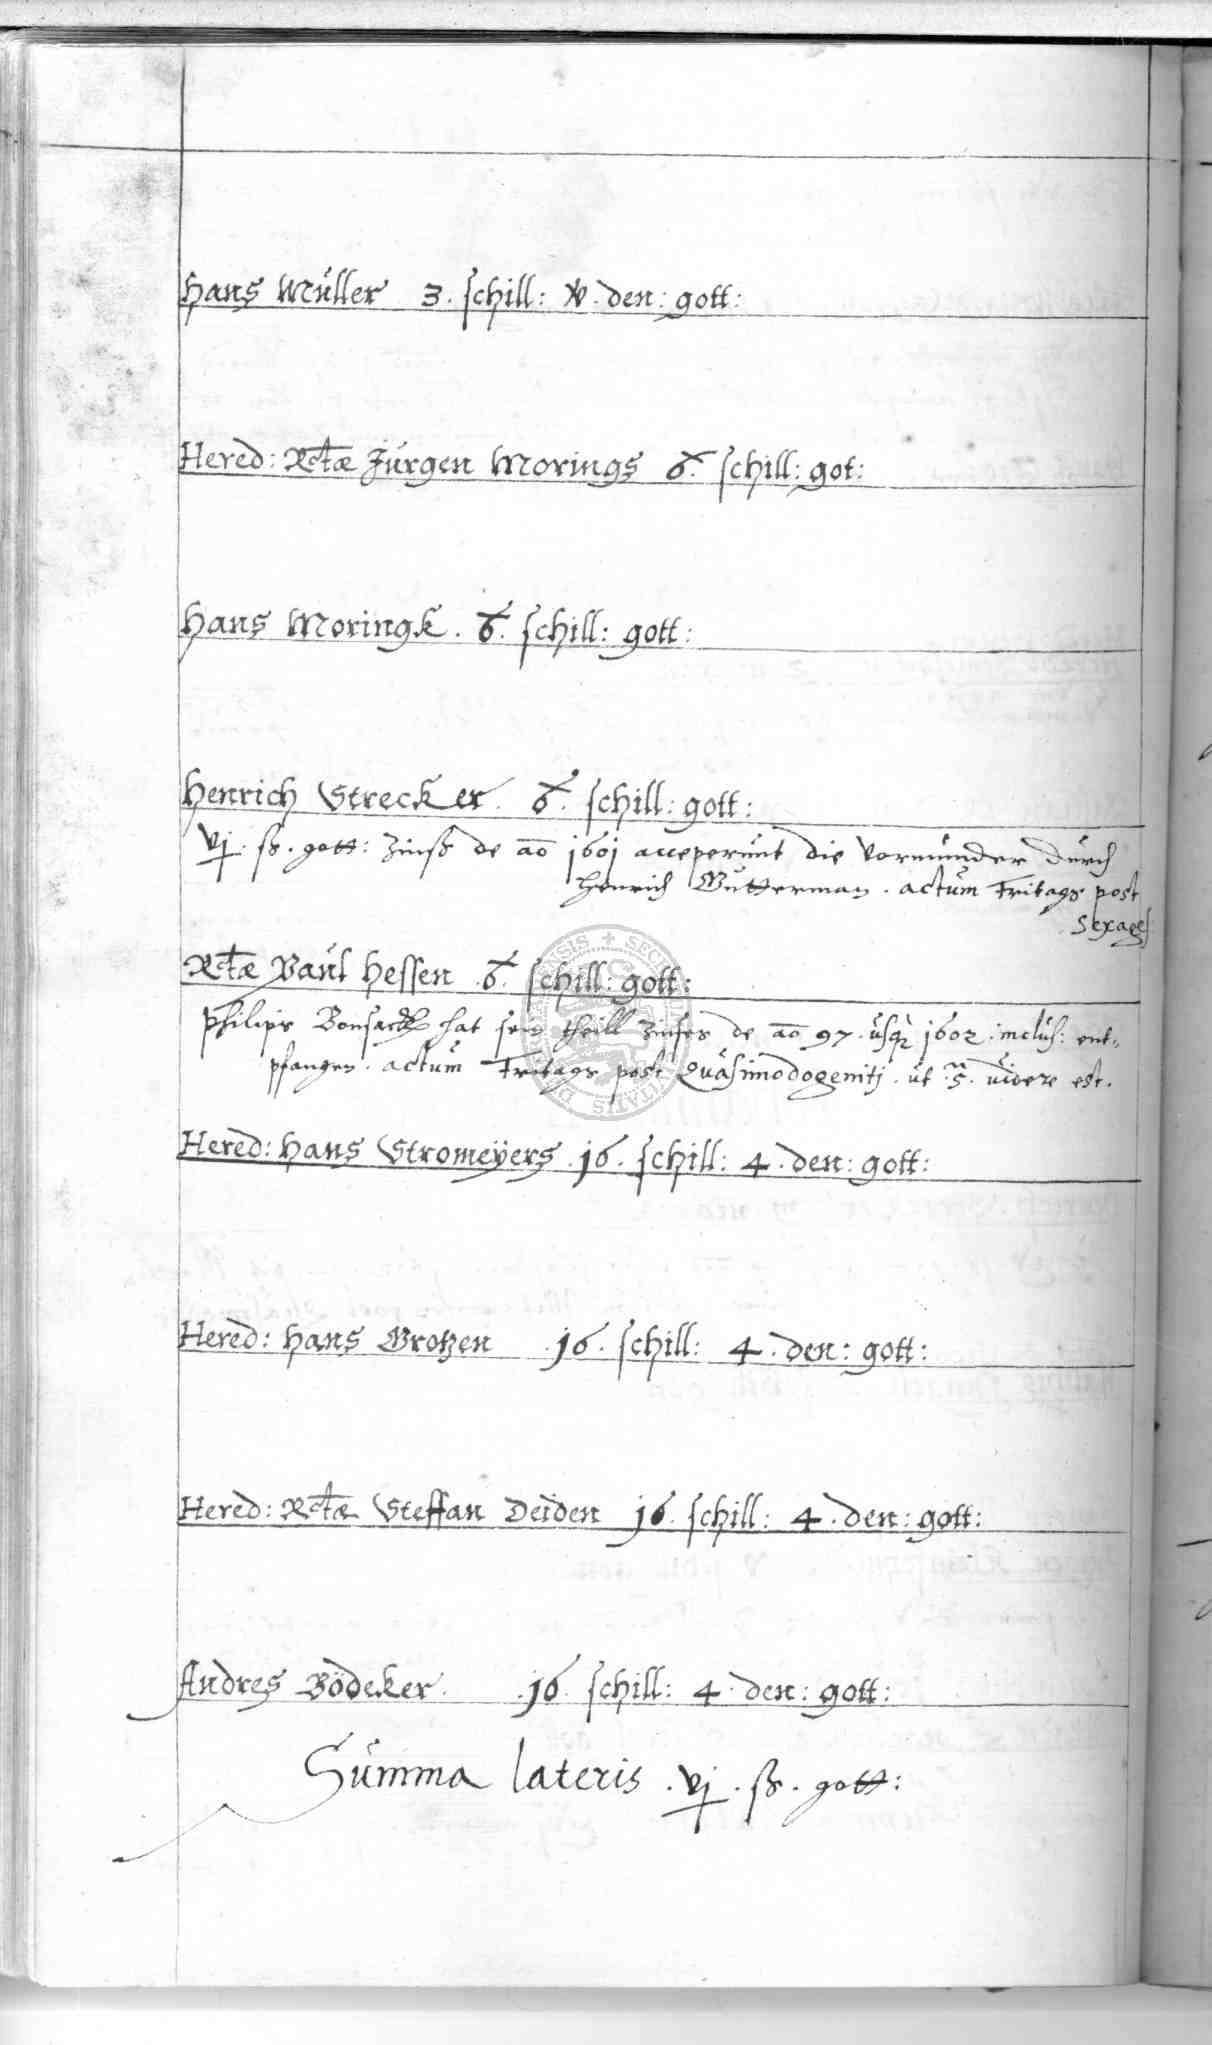 Hans Müller 3. schill: v. den: gott:
Hered: Rctæ Jürgen Morings 6. schill: got:
Hans Moringk. 6. schill: gott:
Henrich Strecker. 6. schill: gott:
vj. ß. gott: Zinß de ao 1601 acceperunt die Vormünder durch
Henrich Gutterman. actum Fritags post
Sexages
Rctæ Paul Hessen 6. schill: gott:
Philips Bonsack hat sein theill Zinses de ao 97. usq 1602. inclus: ent„
pfangen. actum Fritags post Quasimodogeniti. ut videre est.
Hered: Hans Stromeÿers. 16. schill: 4. den: gott:
Hered: Hans Grotzen 16. schill: 4. den: gott:
Hered: Rctæ Steffan Deiden 16. schill: 4. den: gott:
Andres Bödeker. 16. schill: 4. den: gott:
Summa lateris. vj. ß. gott: